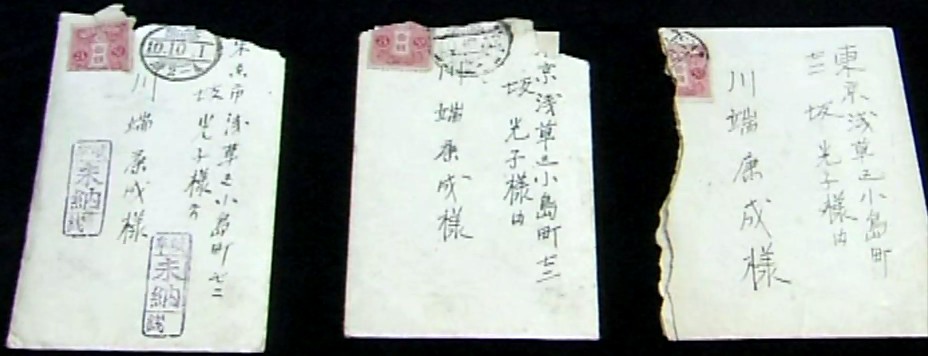 東京市浅草区小島町七二
坂光子様方
川端康成様
10.10.1
未納
未納
京浅草区小島町七二
坂光子様内
川端康成様
東京浅草区小島町
七二
坂光子様内
川端康成様